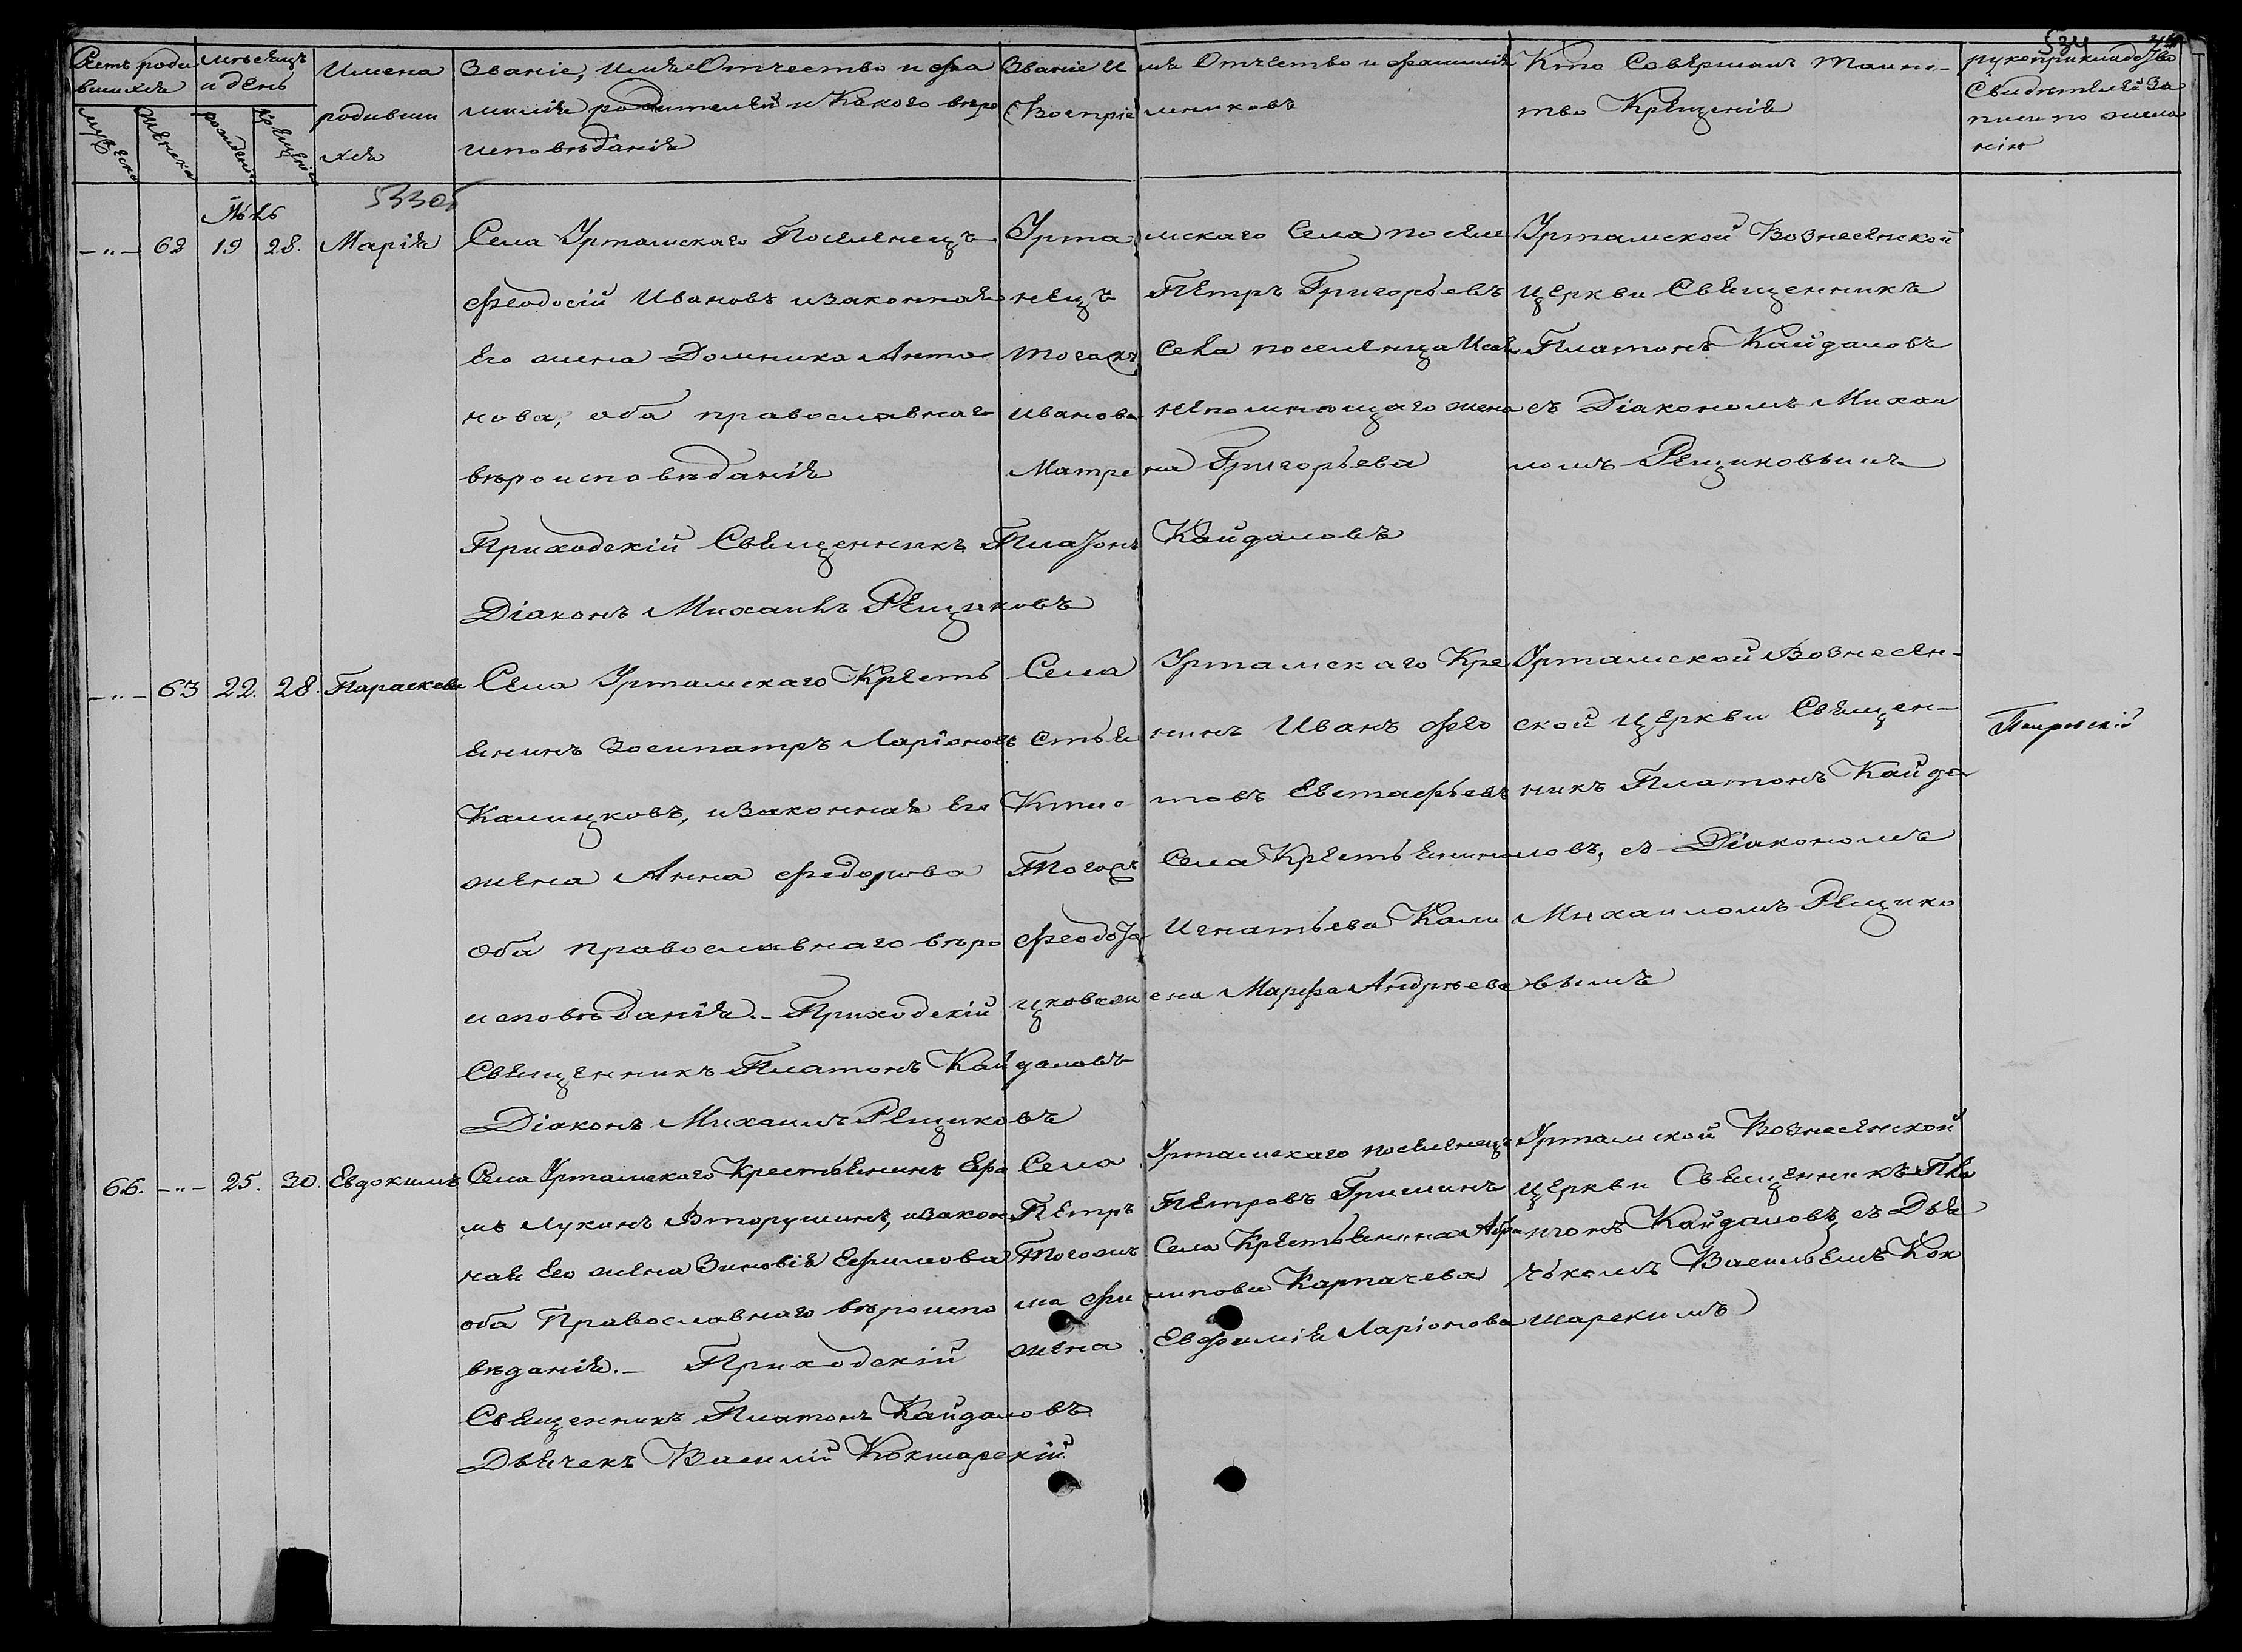 534
Счетъ роди
вшихся
мѣсяцъ
и день
Имена
родивши
хся
Званіе, имя Отчество и фа
милія родителей и Какого веро
исповѣданія
Званіе и мя Отчество и фамилія
Воспріе мниковъ
Кто Совершалъ Таинс-
тво Крещенія
рукоприкладство
Свидѣтелей За
писи по жела
нію
мужеска
женска
рожденія
крещенія
533об
-"- 62 19 28. Марія
Села Уртамскаго Поселенецъ
Феодосій Ивановъ изаконная
Его жена Домника Анто
нова, оба православнаго
вѣроисповѣданія
Приходскій Священникъ Платонъ Кайдаловъ
Діаконъ Михаилъ Рещиковъ
Урта мскаго Села поселе
нецъ Петръ Григорьевъ
тогожъ Села поселенца Исая
Иванова непомнющаго жена
Матре на Григорьева
Уртамской Вознесенской
церкви Священникъ
Платонъ Кайдаловъ
съ Діакономъ Михаи
ломъ Рещиковымъ
-"- 63 22. 28. Параскева
Села Уртамскаго Кресть
янинъ Зосипатръ Ларіоновъ
Калицковъ, изаконная Его
жена Анна Федорова
Оба православнаго вѣро
исповѣданія. - Приходскій
Священникъ Платонъ Кайдаловъ
Діаконъ Михаилъ Рещиковъ
Села Уртамскаго Кре
стья нинъ Иванъ Фео
ктис товъ Евстафьевъ
Тогожъ Села Крестьянина
Феодота Игнатьева Кали
цкова ж ена Марфа Андрѣева
Уртамской Вознесен-
ской церкви Священ-
никъ Платонъ Кайда
ловъ, съ Діакономъ
Михаиломъ Рещико
вымъ
66. -"- 25. 30. Евдокимъ
Села Уртамскаго Крестьянинъ Ефи
мъ Лукинъ Вторушинъ, изакон
ная Его жена Зиновія Ефимова
оба Православнаго вѣроиспо
вѣданія. - Приходскій
Священникъ Платонъ Кайдаловъ
Дьячекъ Василій Кокшарскій
Села Уртамскаго поселенецъ
Петръ Петровъ Гришинъ
Тогожъ Села Крестьянина Абра
ма Фи липова Карпачева
жена Евфимія Ларіонова
Уртамской Вознесенской
церкви Священникъ Пла
тонъ Кайдаловъ съ Дья
чькомъ Васильемъ Кок
шарскимъ